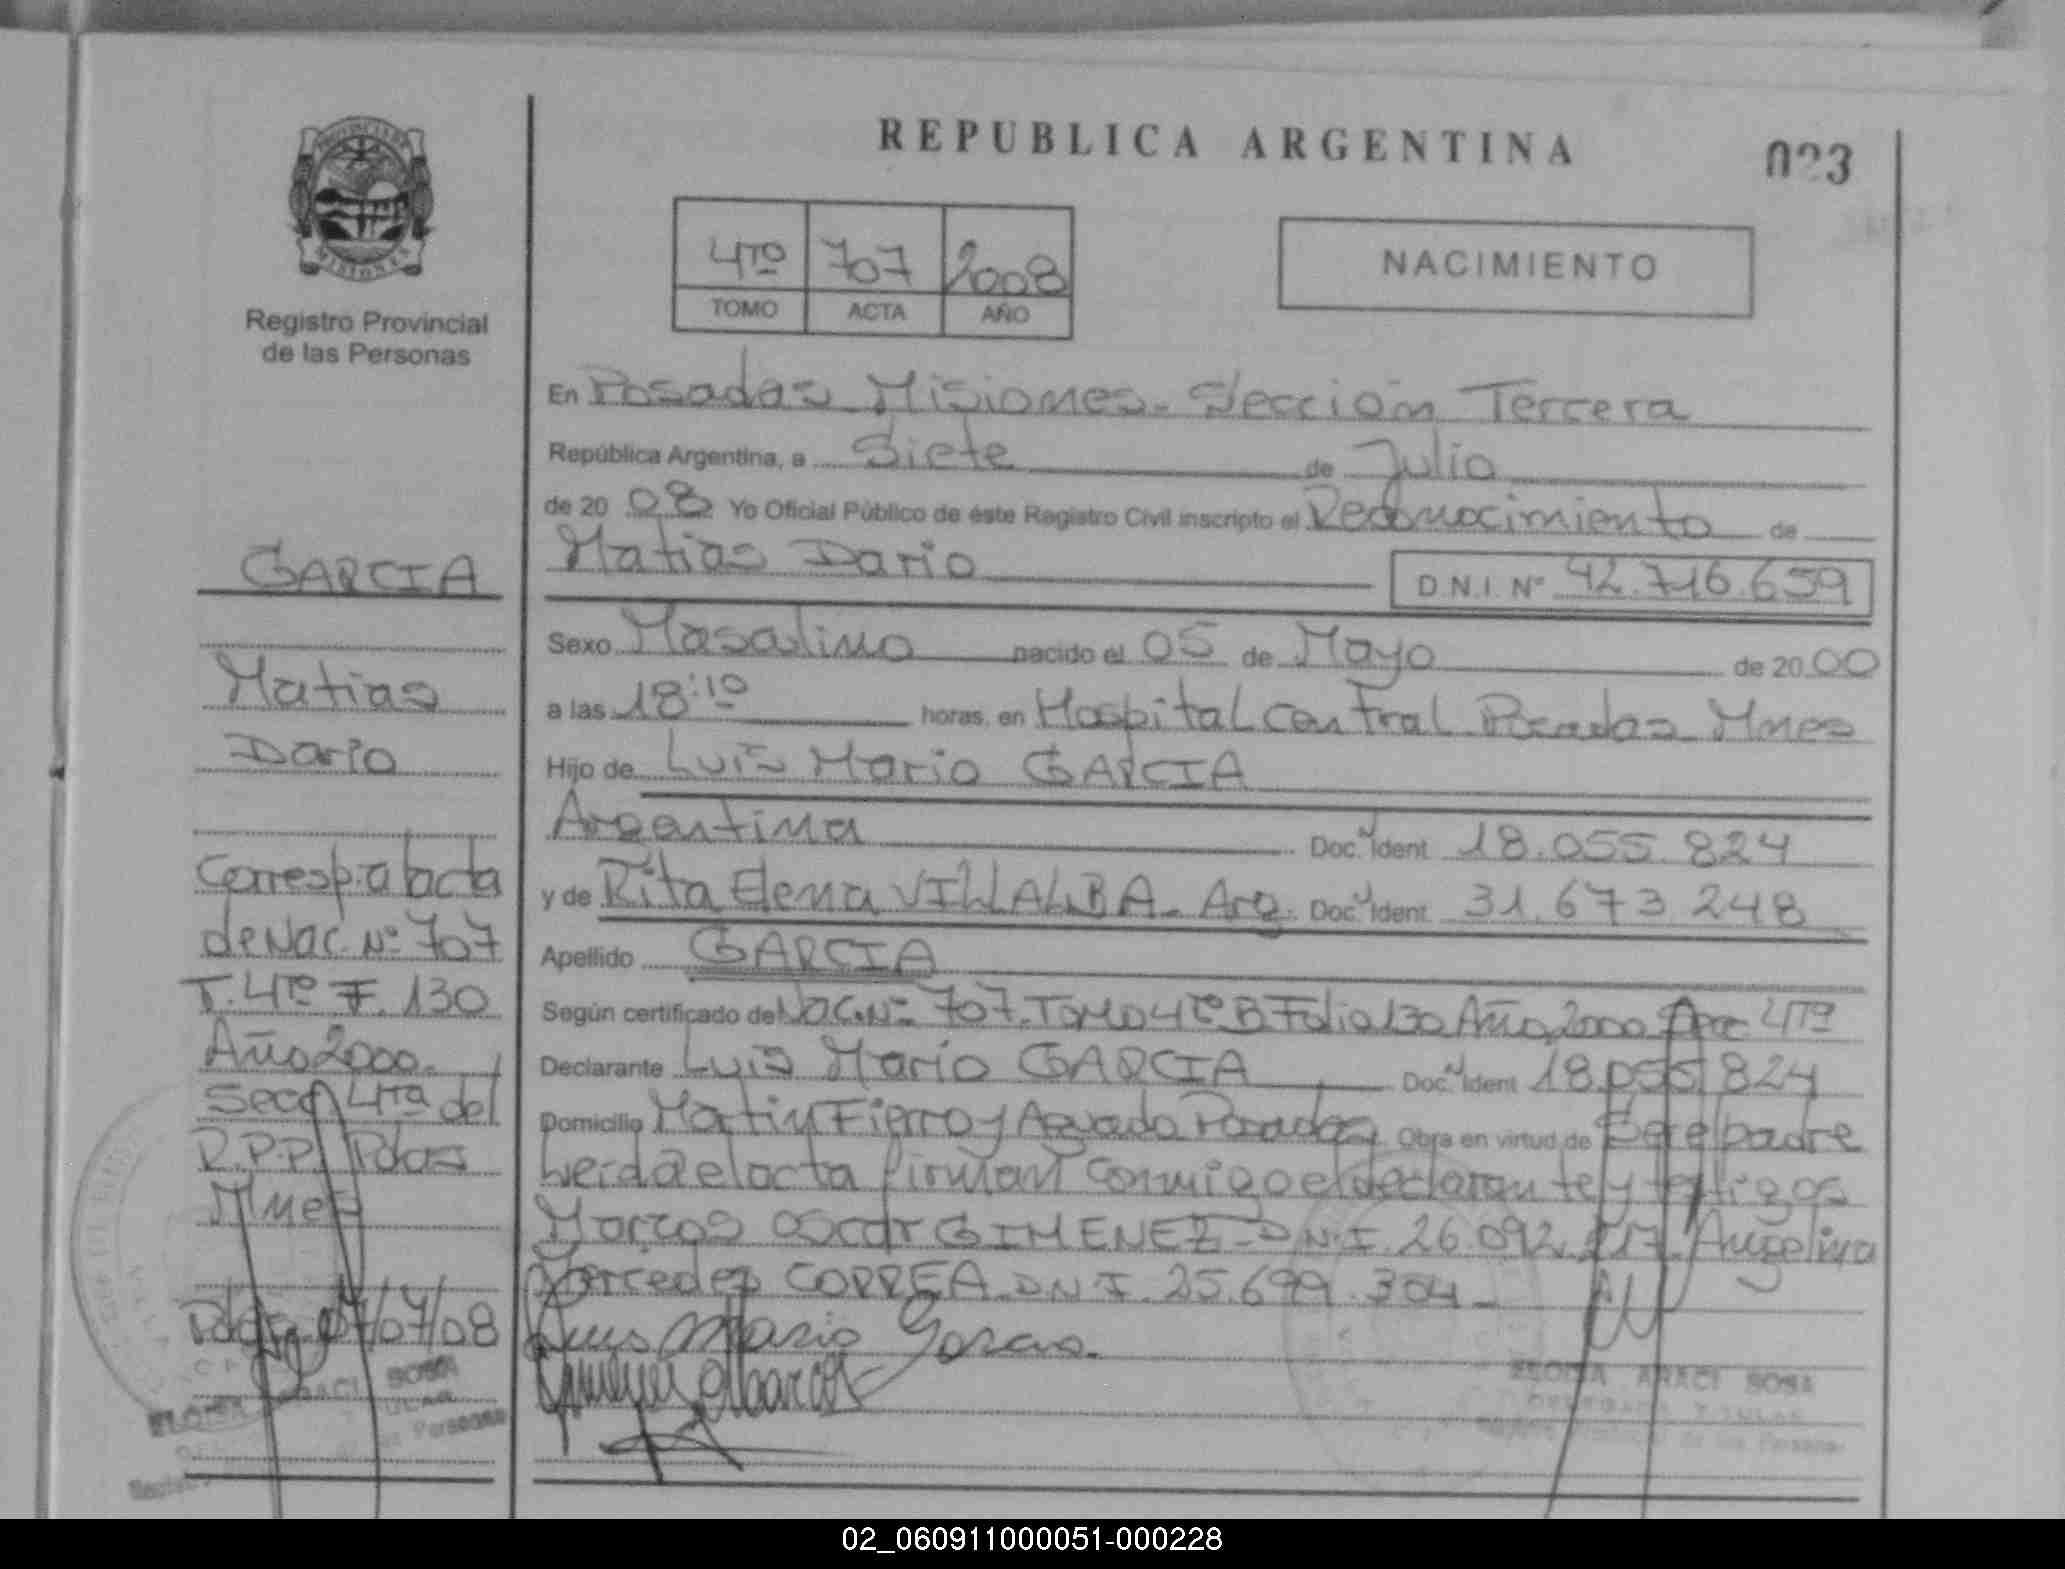 REPUBLICA ARGENTINA
023
PROVINCIA DE
MISIONES
Registro Provincial
de las Personas
4TO 707 2008
TOMO ACTA AÑO
NACIMIENTO
En Posadas Misiones. Sección Tercera
República Argentina, a Siete de Julio
de 20 08 Yo Oficial Público de éste Registro Civil inscripto el Reconocimiento de
Matias Dario D.N.I. Nº 42.716.659
Sexo Masculino nacido el 05 de Mayo de 20 00
a las 18:10 horas, en Hospital Central Posadas Mnes
Hijo de Luis Mario GARCIA
Argentina Doc. Ident 18.055.824
y de Rita Elena VILLALBA. Arg. Doc. Ident 31.673.248
Apellido GARCIA
Según certificado de Nac. Nº 707. Tomo 4to B Folio 130 Año 2000 4ta
Declarante Luis Mario GARCIA Doc. Ident 18.055.824
Domicilio Martin Fierro y Aguado Posadas Obra en virtud de Ser el padre
Leida el acta firman conmigo el declarante y testigos
Marcos Oscar GIMENEZ D.N.I. 26.092. Angelina
Mercedes CORREA D.N.I. 25.699.304
Luis Mario Garcia.
Gimenez Marcos
ELOISA ARACI SOSA
DELEGADA TITULAR
Registro Provincial de las Personas
GARCIA
Matias
Dario
Corresp. a l acta
de Nac. Nº 707
T. 4to F. 130
Año 2000.
Secc 4ta del
R.P.P. Pdas
Mnes
Pdas. 07/07/08
ELOISA ARACI SOSA
TITULAR
de las Personas
02_060911000051-000228